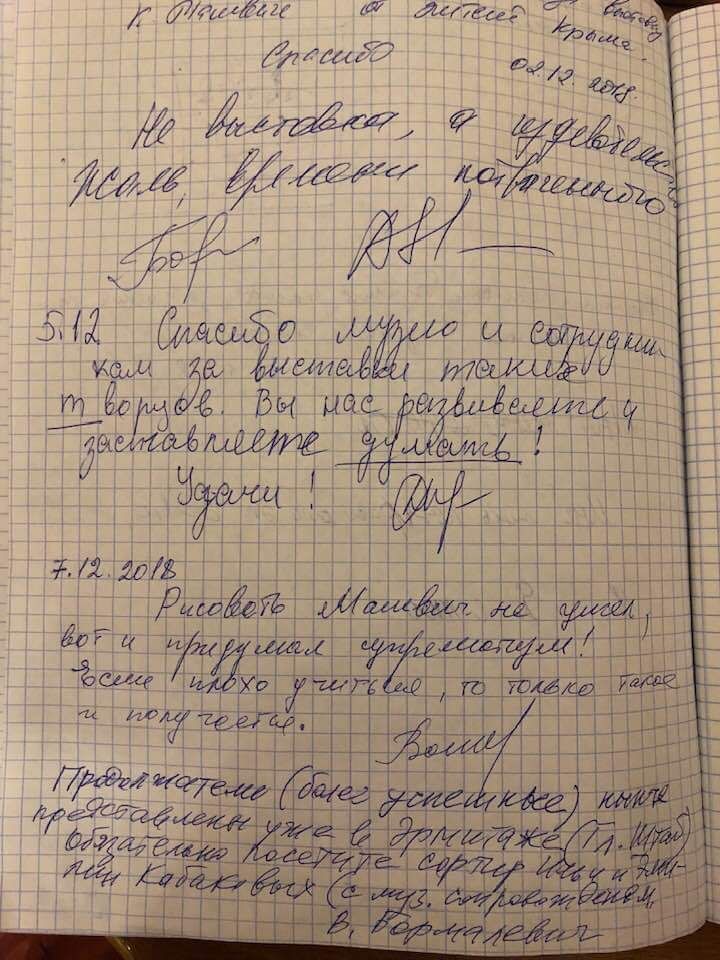 к Малевиче от жителей Крыма.
Спасибо
02.12.2018.
Не выставка, а издевательство
Жаль, времени потраченного
5.12 Спасибо музею и сотрудни
кам за выставки таких
творцов. Вы нас развиваете и
заставляете думать!
Удачи!
7.12.2018
Рисовать Малевич не умел,
вот и придумал супрематизм!
Если плохо учиться, то только такое
и получается.
Продолжатели (более успешные) нынче
представлены уже в Эрмитаже (Гл. Штаб)
Обязательно посетите сортир Ильи и Эми-
лии Кабаковых (с муз. сопровожденем.
В. Бормалевич